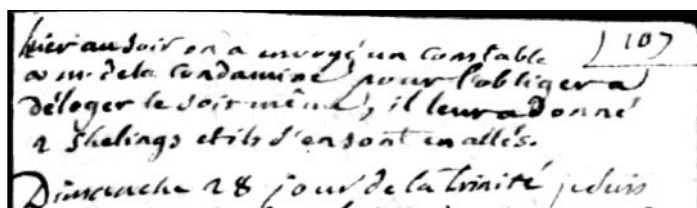 hier au soir on a envoyé un constable 107
a m. de la Condamine, pour l'obliger a
déloger le soir même, il leur a donné
2 shelings et ils s'en sont en allés.
Dimanche 28 jour de la trinité je suis